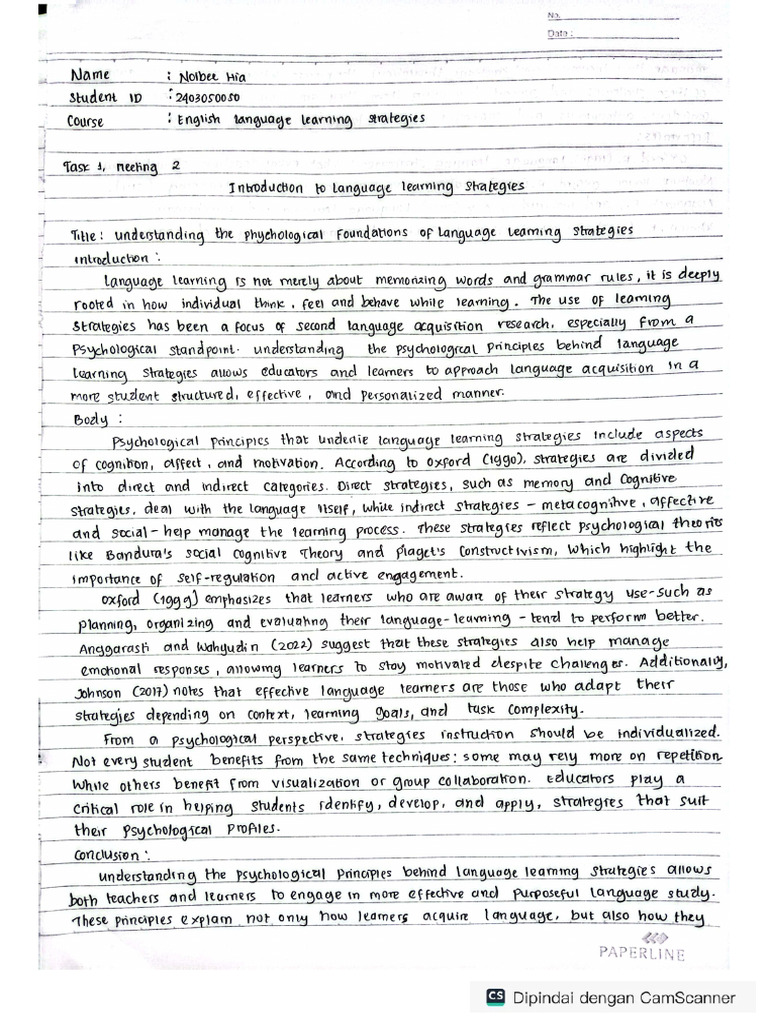 No.
Date :
Name : Nolbee Hia
Student ID : 2403050050
Course : English language learning strategies
Task 1, meeting 2
Introduction to Language learning strategies
Title: understanding the phychological Foundations of Language Learning Strategies
introduction :
Language learning is not merely about memorizing words and grammar rules, it is deeply
rooted in how individual think, feel and behave while learning. The use of learning
strategies has been a focus of second language acquisition research, especially from a
Psychological standpoint. understanding the psychological principles behind language
learning strategies allows educators and learners to approach language acquisition in a
more student structured, effective, and personalized manner.
Body :
Psychological principles that underlie language learning strategies include aspects
of cognition, affect, and motivation. According to Oxford (1990), strategies are divided
into direct and indirect categories. Direct strategies, such as memory and Cognitive
strategies, deal with the language itself, while indirect strategies - metacognitive, affective
and social - help manage the learning process. These strategies reflect psychological theories
like Bandura's social cognitive Theory and Piaget's Constructivism, which highlight the
importance of self-regulation and active engagement.
Oxford (1999) emphasizes that learners who are aware of their strategy use-such as
planning, organizing and evaluating their language-learning - tend to perform better.
Anggarasti and Wahyudin (2022) suggest that these strategies also help manage
emotional responses, allowing learners to stay motivated despite challenges. Additionally,
Johnson (2017) notes that effective language learners are those who adapt their
strategies depending on context, learning goals, and task complexity.
From a psychological perspective, strategies instruction should be individualized.
Not every student benefits from the same techniques: some may rely more on repetition
While others benefit from visualization or group collaboration. Educators play a
critical role in helping students identify, develop, and apply, strategies that suit
their psychological profiles.
Conclusion :
understanding the psychological principles behind language learning strategies allows
both teachers and learners to engage in more effective and purposeful language study.
These principles explain not only how learners acquire language, but also how they
PAPERLINE
CS Dipindai dengan CamScanner